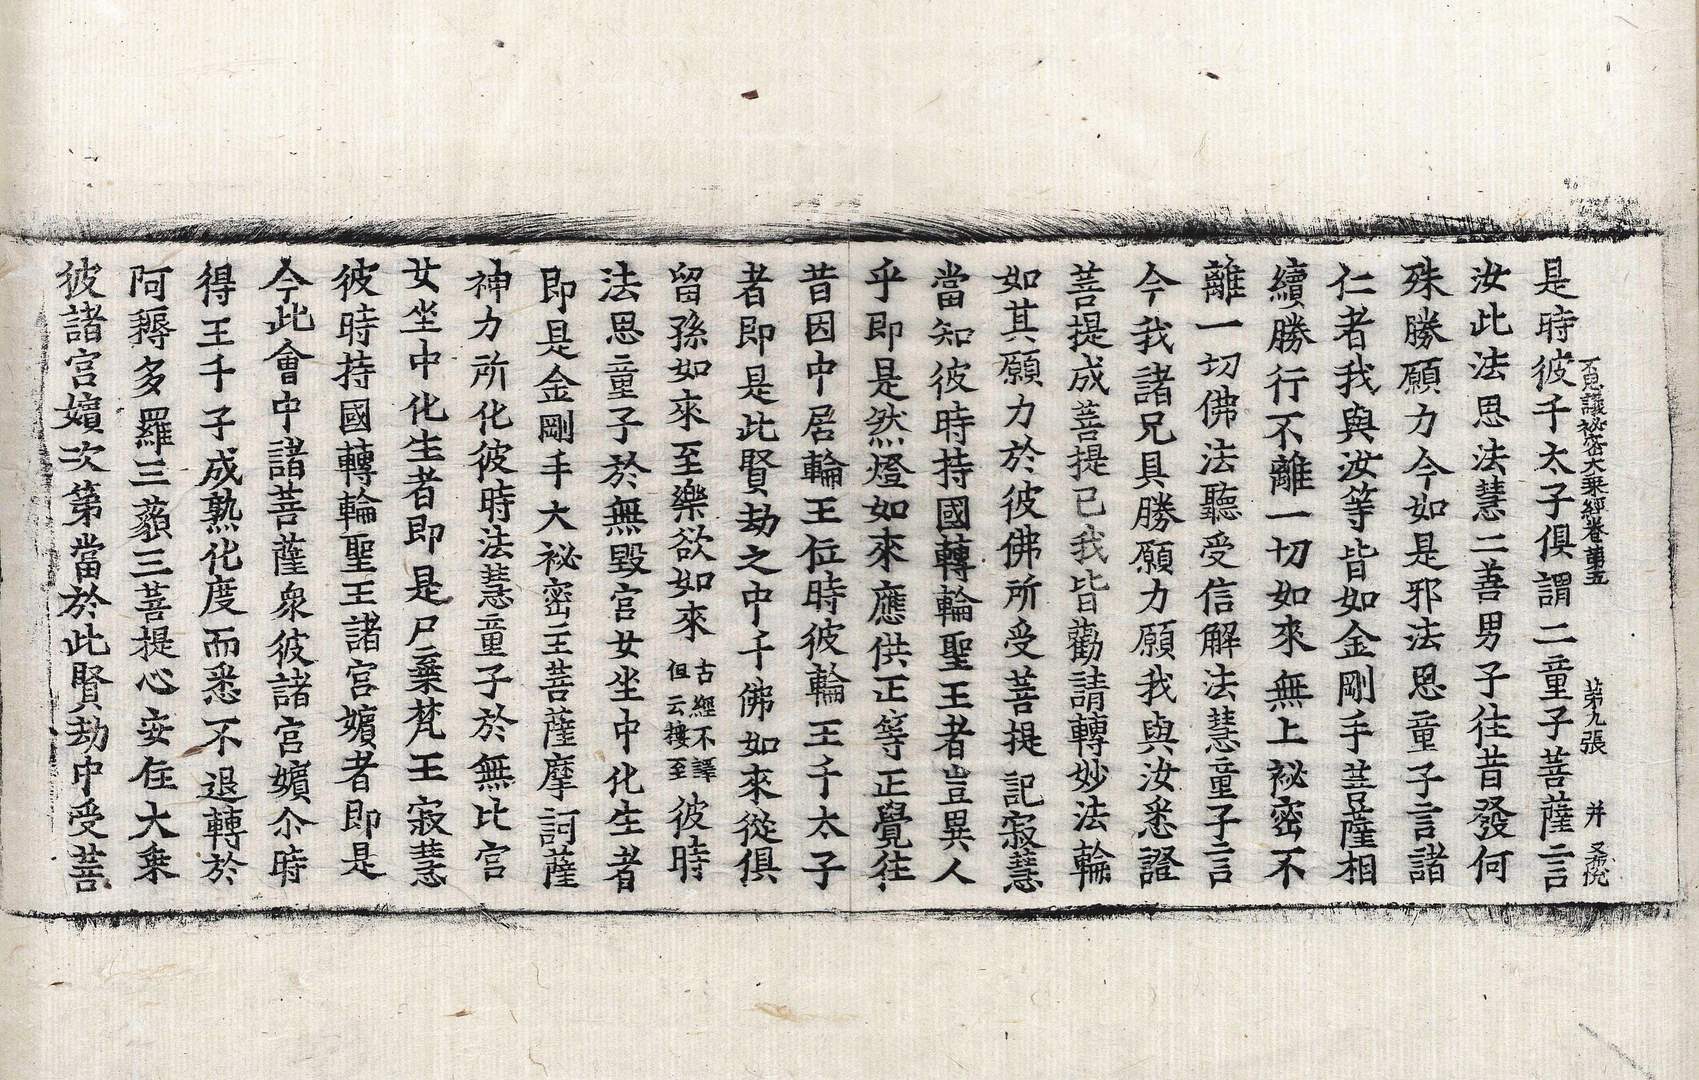 不思議祕密大乘經卷第五　第九張　并　又悅
是時彼千太子俱謂二童子菩薩言
汝此法思法慧二善男子往昔發何
殊勝願力今如是邪法思童子言諸
仁者我與汝等皆如金剛手菩薩相
續勝行不離一切如來無上祕密不
離一切佛法聽受信解法慧童子言
今我諸兄具勝願力願我與汝悉證
菩提成菩提已我皆勸請轉妙法輪
如其願力於彼佛所受菩提記寂慧
當知彼時持國轉輪聖王者豈異人
乎即是然燈如來應供正等正覺往
昔因中居輪王位時彼輪王千太子
者即是此賢劫之中千佛如來從俱
留孫如來至樂欲如來古經不譯但云摟至彼時
法思童子於無毀宮女坐中化生者
即是金剛手大祕密主菩薩摩訶薩
神力所化彼時法慧童子於無比宮
女坐中化生者即是尸棄梵王寂慧
彼時持國轉輪聖王諸宮嬪者即是
今此會中諸菩薩衆彼諸宮嬪尒時
得王千子成熟化度而悉不退轉於
阿耨多羅三藐三菩提心安住大乘
彼諸宮嬪次第當於此賢劫中受菩